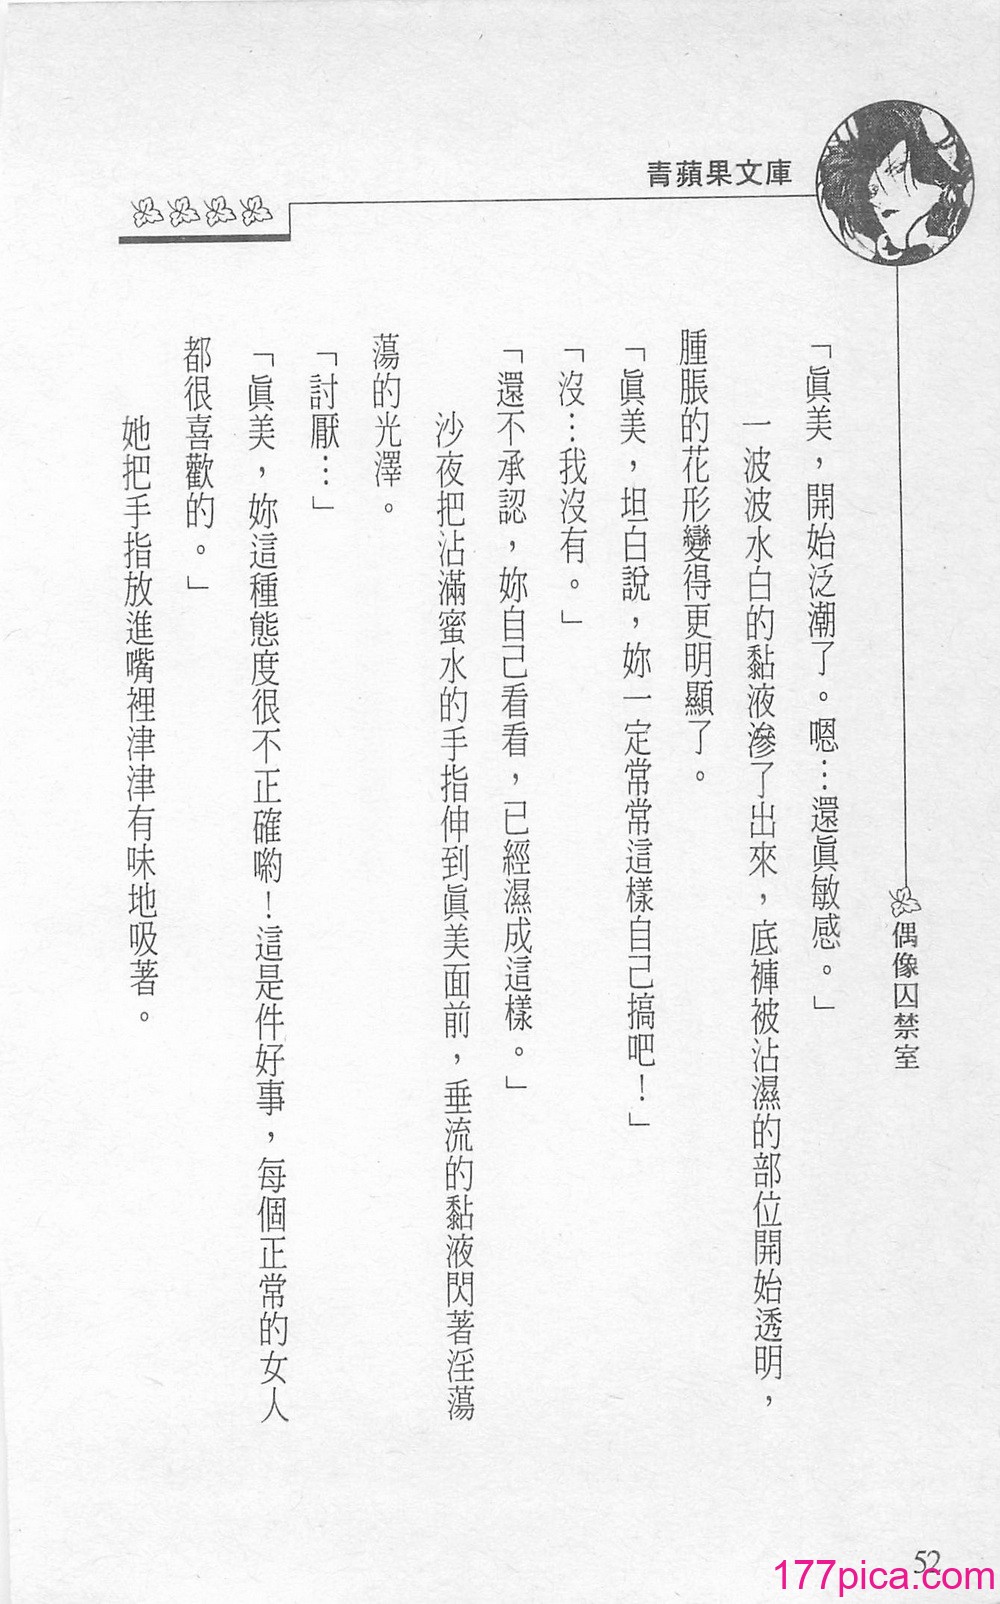 青蘋果文庫
偶像囚禁室
「眞美，開始泛潮了。嗯…還眞敏感。」
一波波水白的黏液滲了出來，底褲被沾濕的部位開始透明，
腫脹的花形變得更明顯了。
「眞美，坦白說，妳一定常常這樣自己搞吧！」
「沒…我沒有。」
「還不承認，妳自己看看，已經濕成這樣。」
沙夜把沾滿蜜水的手指伸到眞美面前，垂流的黏液閃著淫蕩
蕩的光澤。
「討厭…」
「眞美，妳這種態度很不正確喲！這是件好事，每個正常的女人
都很喜歡的。」
她把手指放進嘴裡津津有味地吸著。
52
177pica.com